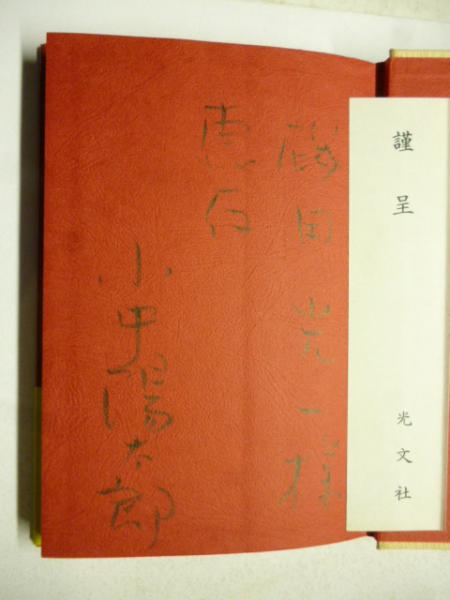 謹呈
光文社
磯田光一様
恵存
小中陽太郎